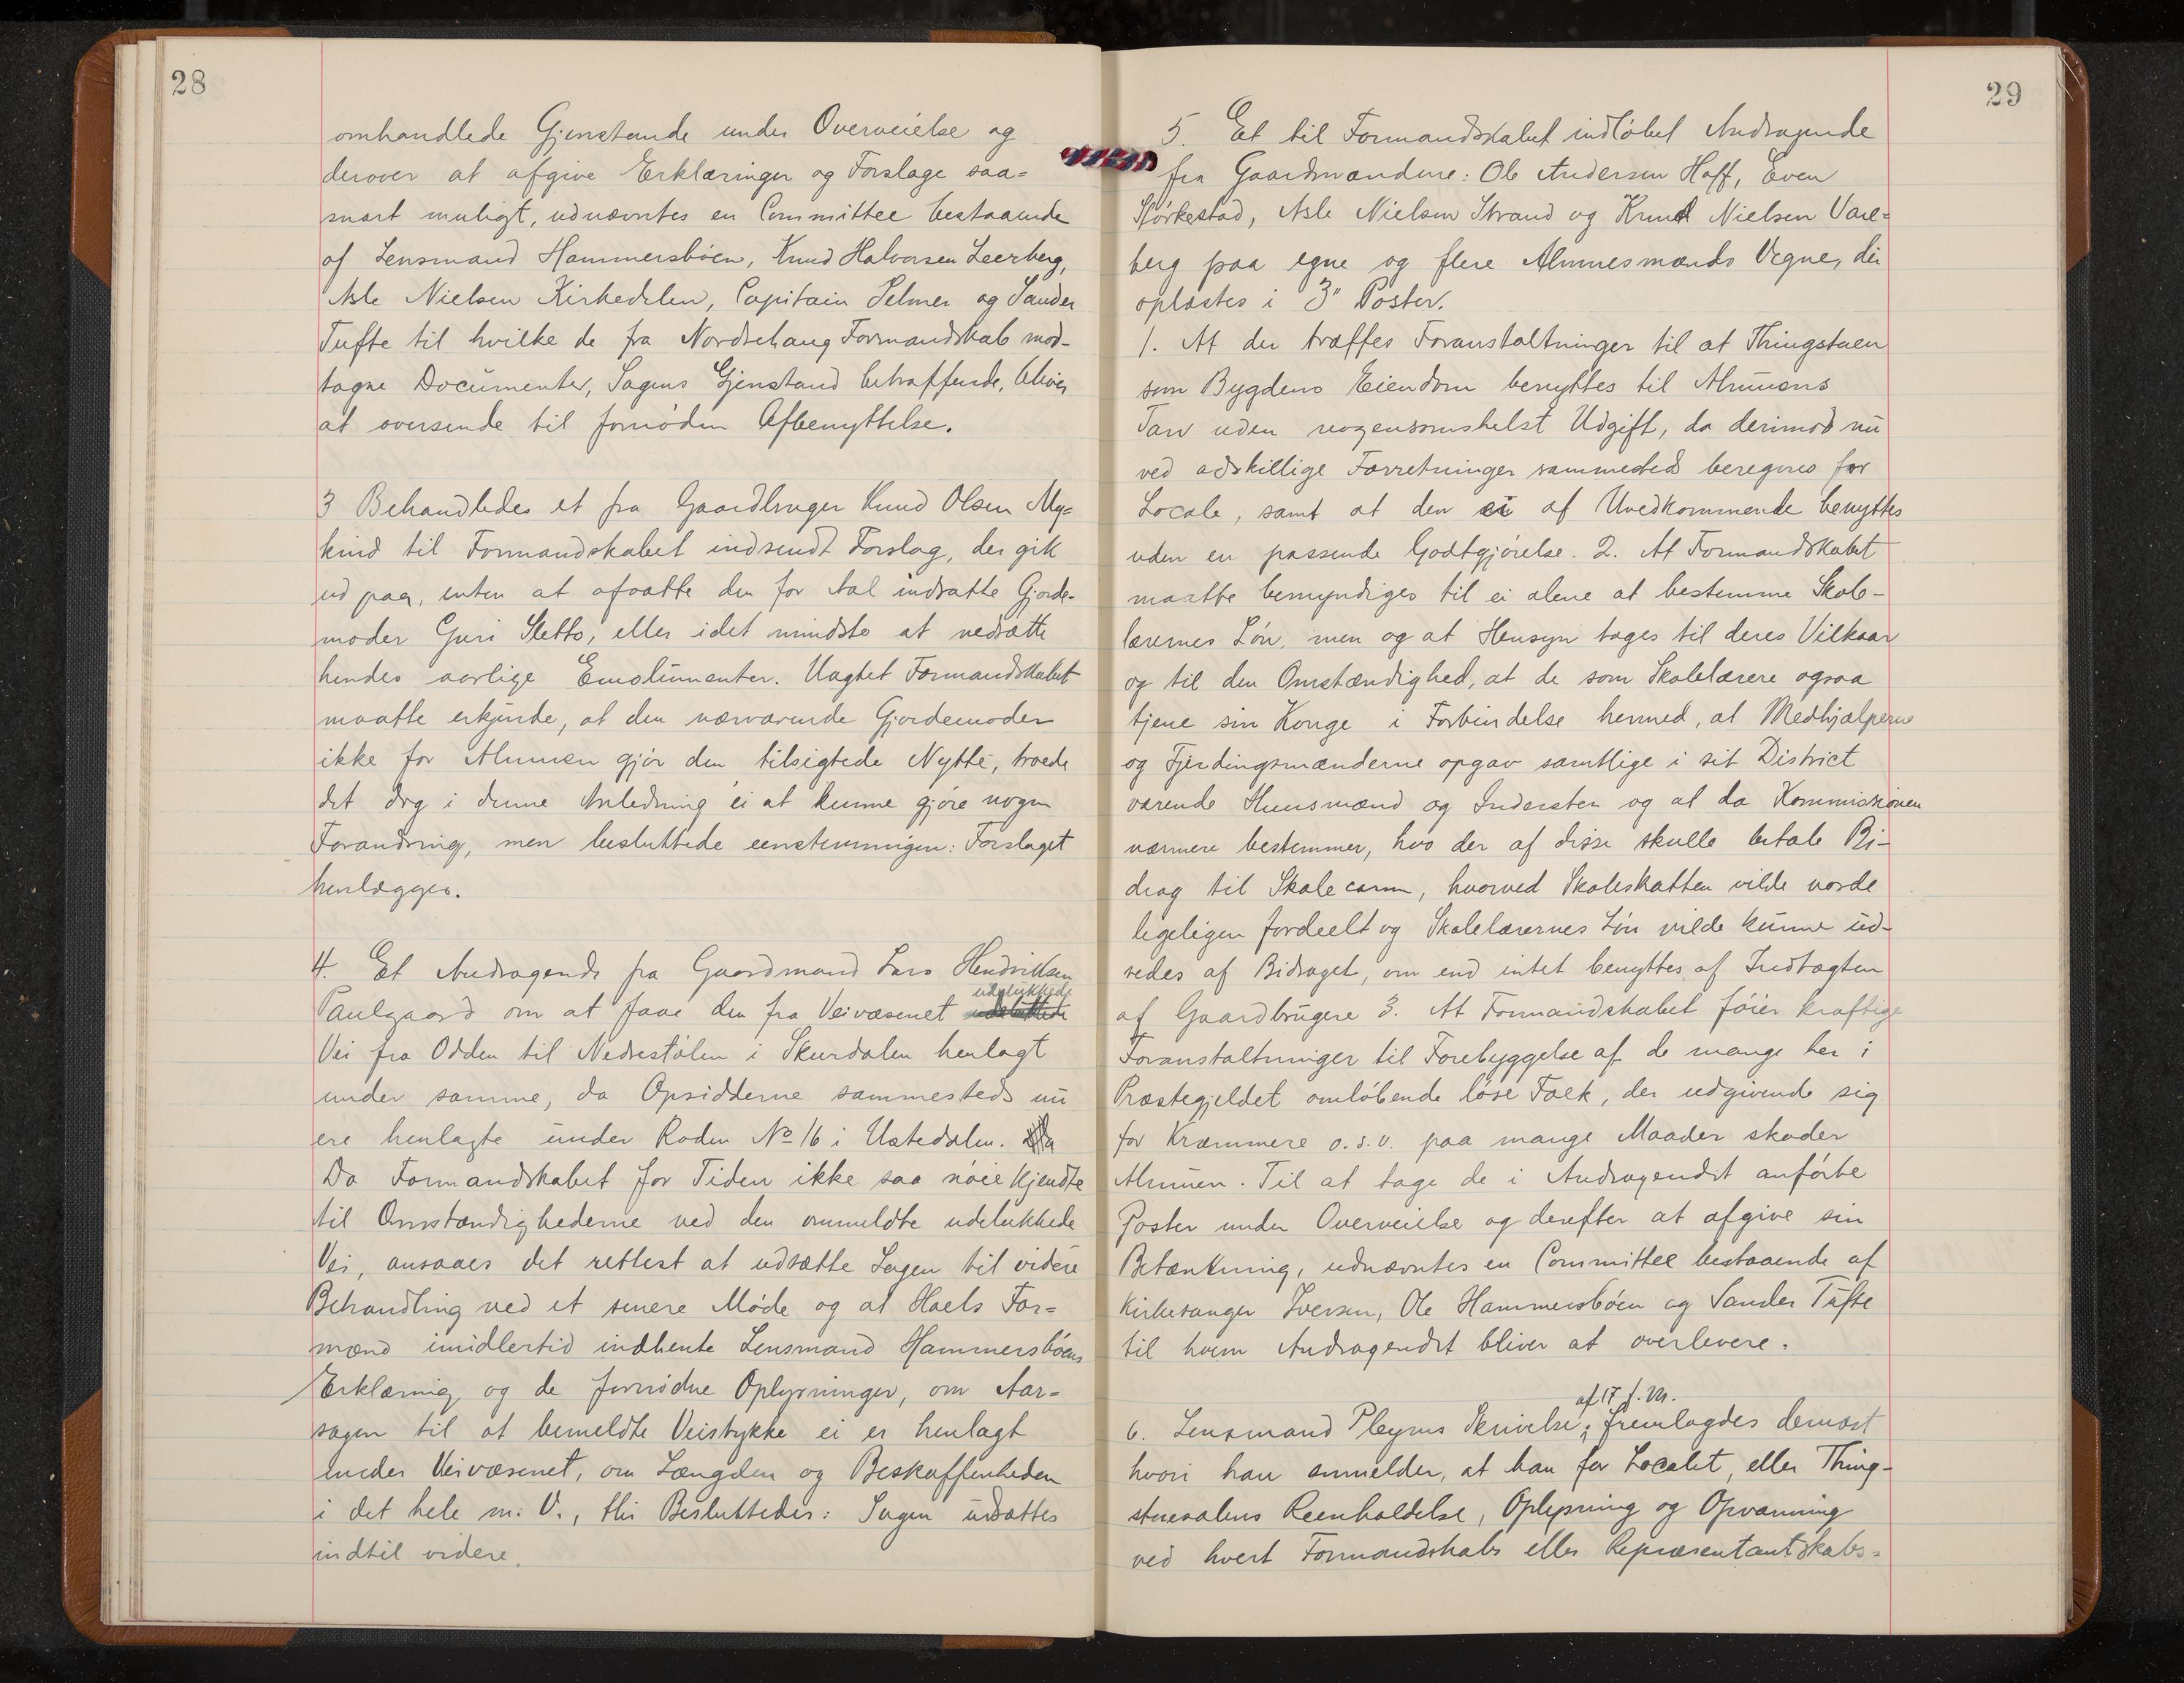 28
omhandlede Gjenstande under Overveielse og
derover at afgive Erklæringer og Forslage saa=
snart muligt, udnævntes en Committee bestaaende
af Lensmand Hammersbøen, Knud Halvorsen Leerberg,
Asle Nielsen Kirkedelen, Capitain Pelmer og Sander
Tufte til hvilke de fra Nordrehaug Formandskab mod-
tagne Documenter, Sagens Gjenstand betræffende, bliver
at oversende til fornøden Afbenyttelse.
3 Behandledes et fra Gaardbruger Knud Olsen My=
kind til Formandskabet indsendt Forslag, der gik
ud paa, enten at afsatte den for Aal indsatte Gjorde-
moder Guri Sletto, eller idet mindste at nedsætte
hendes aarlige Emolumenter. Uagtet Formandskabet
maatte erkjende, at den nærværende Gjordemoder
ikke for Almuen gjør den tilsigtede Nytte, troede
det dog i denne Anledning ei at kunne gjøre nogen
Forandring, men besluttede eenstemmigen: Forslaget
henlægges.
4. Et Andragende fra Gaardmand Lars Hendriksen
udelukkede
Paulgaard om at faae den fra Veivæsenet
Vei fra Odden til Nedrestølen i Skurdalen henlagt
under samme, da Opsidderne sammesteds nu
ere henlagte under Roden No 16 i Ustedalen.
Da Formandskabet for Tiden ikke saa nøie kjendte
til Omstændighederne ved den ommeldte udelukkede
Vei, ansaaes det rettest at udsætte Sagen til videre
Behandling ved et senere Møde og at Haels For=
mænd imidlertid indhente Lensmand Hammersbøens
Erklæring og de fornødne Oplysninger, om Aar=
sagen til at bemeldte Veistykke ei er henlagt
under Veivæsenet, om Længden og Beskaffenheden
i det hele m. V., thi Besluttedes: Sagen udsættes
indtil videre.
29
5. Et til Formandskabet indløbet Andragende
fra Gaardmændene: Ole Andersen Hoff, Even
Størkestad, Asle Nielsen Strand og Knud Nielsen Vare=
berg paa egne og flere Almuesmænds Vegne, der
oplæstes i 3" Poster.
1. At der træffes Foranstaltninger til at Thingstuen
som Bygdens Eiendom benyttes til Almuens
Tarv uden nogensomshelst Udgift, da derimod nu
ved adskillige Forretninger sammesteds beregnes for
Locale, samt at den ei af Uvedkommende benyttes
uden en passende Godtgjørelse. 2. At Formandskabet
maatte bemyndiges til ei alene at bestemme Skole-
lærernes Løn, men og at Hensyn tages til deres Vilkaar
og til den Omstændighed, at de som Skolelærere ogsaa
tjene sin Konge i Forbindelse hermed, at Medhjælperne
og Fjerdingsmænderne opgav samtlige i sit District
værende Huusmænd og Inderster og at da Kommissionen
nærmere bestemmer, hvo der af disse skulle betale Bi-
drag til Skolecassen, hvorved Skoleskatten vilde vorde
ligeligen fordeelt og Skolelærernes Løn vilde kunne ud-
redes af Bidraget, om end intet benyttes af Indtægten
af Gaardbrugere 3. At Formandskabet føier kraftige
Foranstaltninger til Forebyggelse af de mange her i
Præstegjeldet omløbende løse Folk, der udgivende sig
for Kræmmere o.s.v. paa mange Maader skader
Almuen. Til at tage de i Andragendet anførte
Poster under Overveielse og derefter at afgive sin
Betænkning, udnævntes en Committee bestaaende af
Kirkesanger Iversen, Ole Hammersbøen og Sander Tufte
til hvem Andragendet bliver at overlevere.
af 17 f. M.
6. Lensmand Pleyms Skrivelse, fremlagdes dernæst
hvori han anmelder, at han for Localet, eller Thing-
stuesalens Reenholdelse, Oplysning og Opvarming
ved hvert Formandskabs eller Repræsentantskabs=